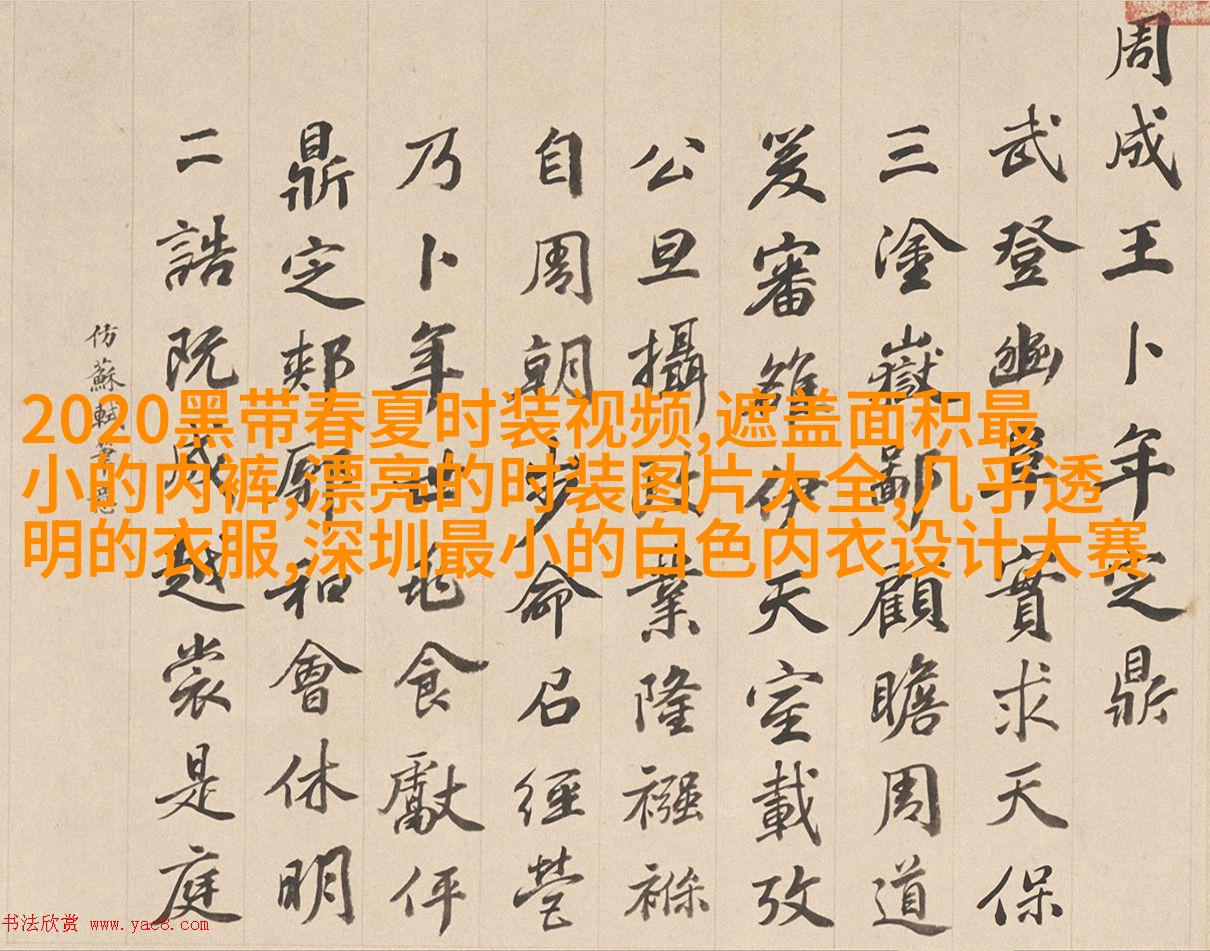 周成王卜年定鼎
武登豳阜實求天保
三塗嶽鄙顧瞻周道
爰審雒伊天室載攷
公旦攝政業隆襁褓
自周朝步命召經營
乃卜年世兆食獻伻
鼎定郟鄏和會休明
二誥既成越裳是庭
仿蘇軾筆意
2020黑带春夏时装视频,遮盖面积最
小的内裤,漂亮的时装图片大全,几乎透
明的衣服,深圳最小的白色内衣设计大赛
书法欣赏 www.yac8.com